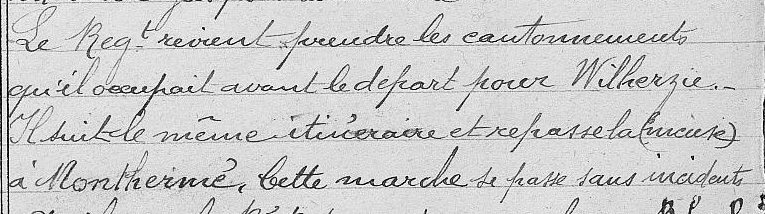 Le Regt revient prendre les cantonnements
qu'il occupait avant le depart pour Wilherzie.
Il suit le même itineraire et repasse la (meuse)
à Monthermé, Cette marche se passe sans incidents